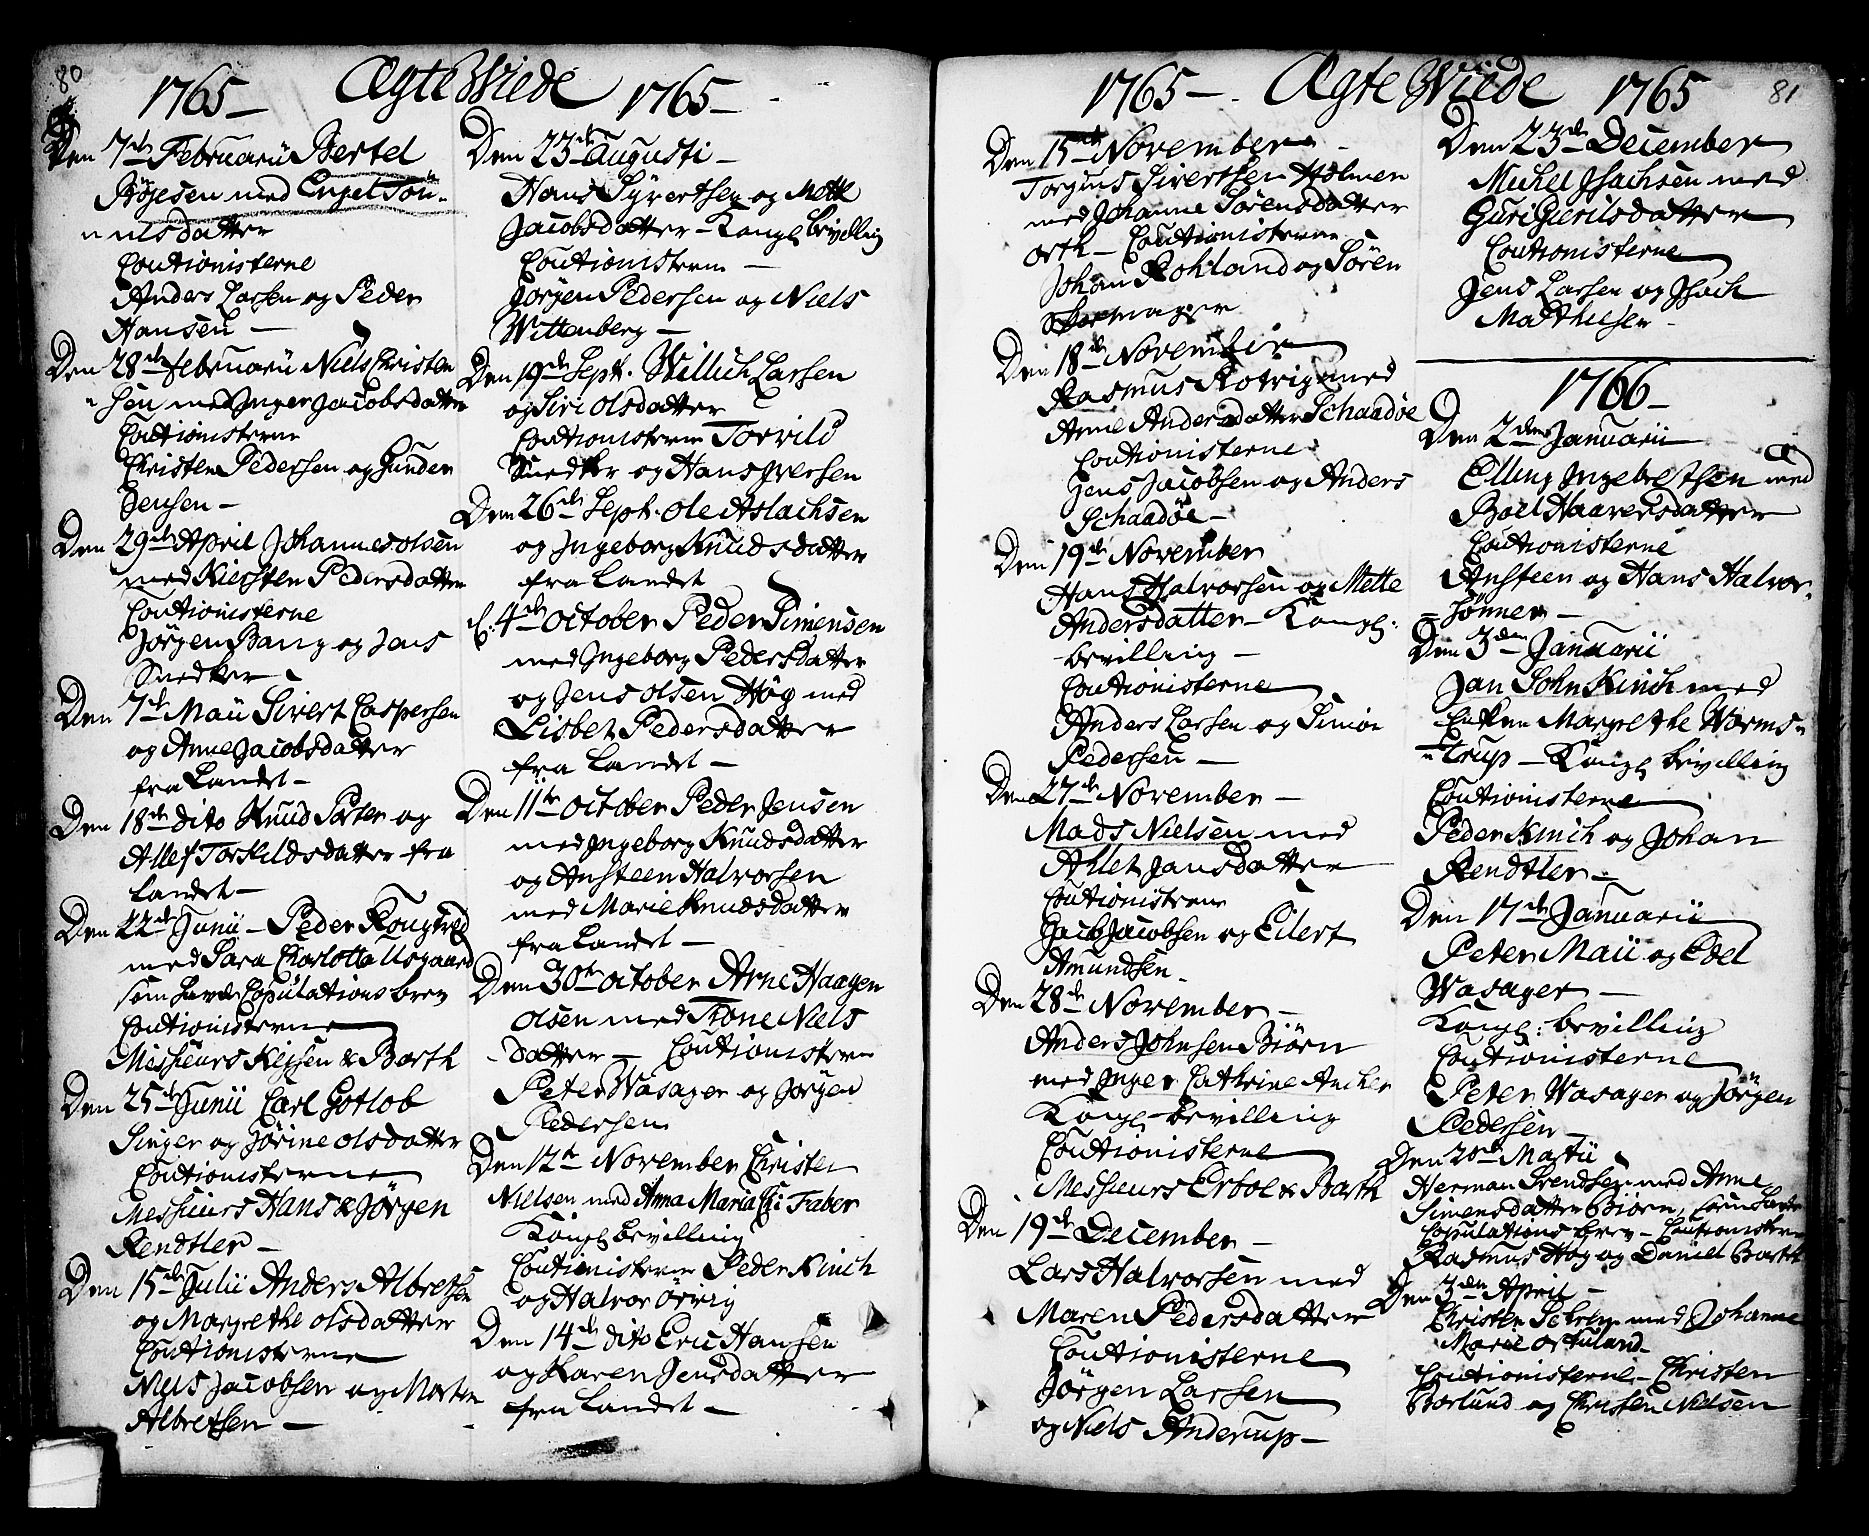 80
1765 – ÆgteWiede 1765 –
Den 7de Februarii Bertel
Böjesen med Engel Tön-
nilsdatter
Coutionisterne
Anders Larsen og Peder
Hansen –
Den 28de Februarii Niels Christen
sen med Inger Jacobsdatter
Coutionisterne
Christen Pedersen og Gunder
Jensen –
Den 29de April Johannes Olsen
med Kiersten Pedersdatter
Coutionisterne
Jörgen Bang og Jens
Snedker
Den 7de Maii Sivert Caspersen
og Anne Jacobsdatter
fra Landet –
Den 18de dito Knud Porter og
Allef Torkildsdatter fra
Landet –
Den 22de Junii – Peder
med Sara Charlotta Usgaard
som havde Copulations brev
Coutionisterne
Messieurs Keysen & Barth
Den 25de Junii Carl Gotlob
Singer og Jörine Olsdatter
Coutionisterne
Messieurs Hans & Jörgen
Rendtler –
Den 15de Julii Anders Albretsen
og Margrethe Olsdatter
Coutionisterne
Niels Jacobsen og Morten
Albretsen –
Den 23de Augusti –
Hans Syvertsen og Mette
Jacobsdatter – Kongl bevilling
Coutionisterne –
Jörgen Pedersen og Niels
Wittenberg –
Den 19de Sept. Willich Larsen
og Siri Olsdatter
Coutionisterne Torvild
Snedker og Hans Iversen
Den 26de Sept. Ole Aslachsen
og Ingeborg Knudsdatter
fra Landet
d. 4de October Peder Simensen
med Ingeborg Pedersdatter
og Jens Olsen Høg med
Lisbet Pedersdatter
fra Landet –
Den 11te October Peder Jensen
med Ingeborg Knudsdatter
og Ansteen Halvorsen
med Marie Knudsdatter
fra Landet –
Den 30te October Arne Haagen
Olsen med Tone Niels
datter – Coutionisterne
Peter Wasager og Jörgen
Pedersen
Den 12te November Christen
Nielsen med Anna Maria Faber
Kongl bevilling
Coutionisterne Peder Kinch
og Halvor Örvig
Den 14de dito Eric Hansen
og Karen Jensdatter
fra Landet –
81
1765 – Ægte Wiede 1765
Den 15de November
Torgius Sivertsen Holmen
med Johanne Sörensdatter
Orth – Coutionisterne
Johan Rohland og Sören

Den 18de November
Rasmus Rotrig med
Anne Andersdatter Schaadöe
Coutionisterne
Jens Jacobsen og Anders
Schaadöe –
Den 19de November
Hans Halvorsen og Mette
Andersdatter – Kongl:
bevilling –
Coutionisterne
Anders Larsen og Simon
Pedersen –
Den 27de November –
Mads Nielsen med
Ahlet Jansdatter
Coutionisterne
Jacob Jacobsen og Eilert
Amundsen –
Den 28de November –
Anders Johnsen Biörn
med Inger Cathrine Ancher
Kongl – bevilling
Coutionisterne
Messieurs Erboe & Barth
Den 19de December –
Lars Halvorsen med
Maren Pedersdatter
Coutionisterne
Jörgen Larsen
og Niels Anderup –
Den 23de December
Michel Isachsen med
Guri Gierilsdatter
Coutionisterne
Jens Larsen og Isach
Mathiesen –
1766 –
Den 2den Januarii
Elling Ingebretsen med
Boel Haaversdatter
Coutionisterne
Ansteen og Hans Halvor-
sönner –
Den 3den Januarii
Jan John Kinch med
Enken Margrethe Worms-
trup – Kongl bevilling
Coutionisterne
Peder Kinch og Johan
Rendtler –
Den 17de Januarii
Peter Maii og Edel
Wasager –
Kongl: bevilling
Coutionisterne
Peter Wasager og Jörgen
Pedersen –
Den 20de Martii
Herman Svendsen med Anne
Simensdatter Biörn, som havde
Copulations brev – Coutionisterne
Rasmus Høg og Daniel Barth
Den 3den April –
Christen med Johanne
Marie Ortuland –
Coutionisterne – Christen
Borlund og Christen Nielsen